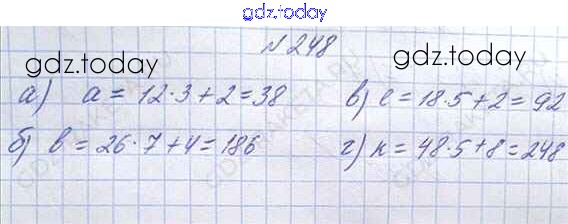 gdz.today
№ 248
gdz.today gdz.today
а) a = 12·3+2=38 в) c = 18·5+2=92
б) b = 26·7+4=186 г) k = 48·5+8=248